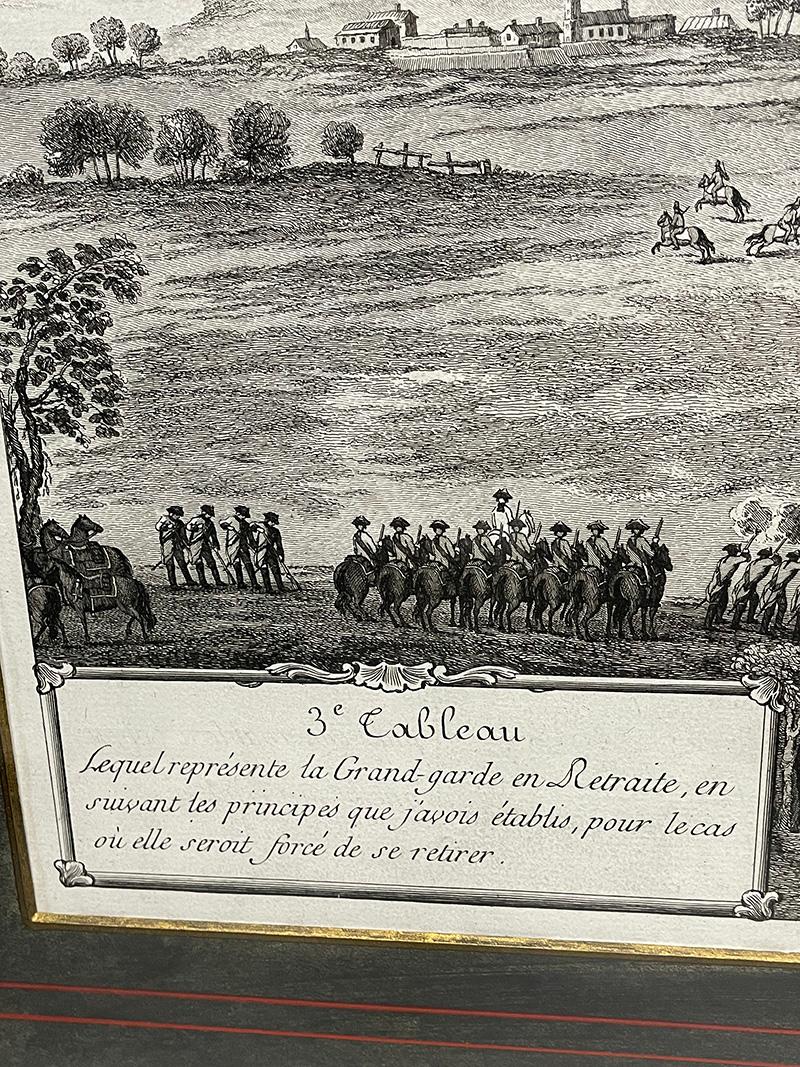 3e Tableau
Lequel représente la Grand-garde en Retraite, en
suivant les principes que j'avois établis, pour le cas
où elle seroit forcé de se retirer.